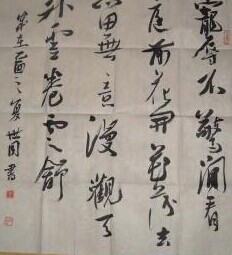 寵辱不驚閒看
庭前花開花落去
留無意漫觀天
外雲卷雲舒
之夏世国書